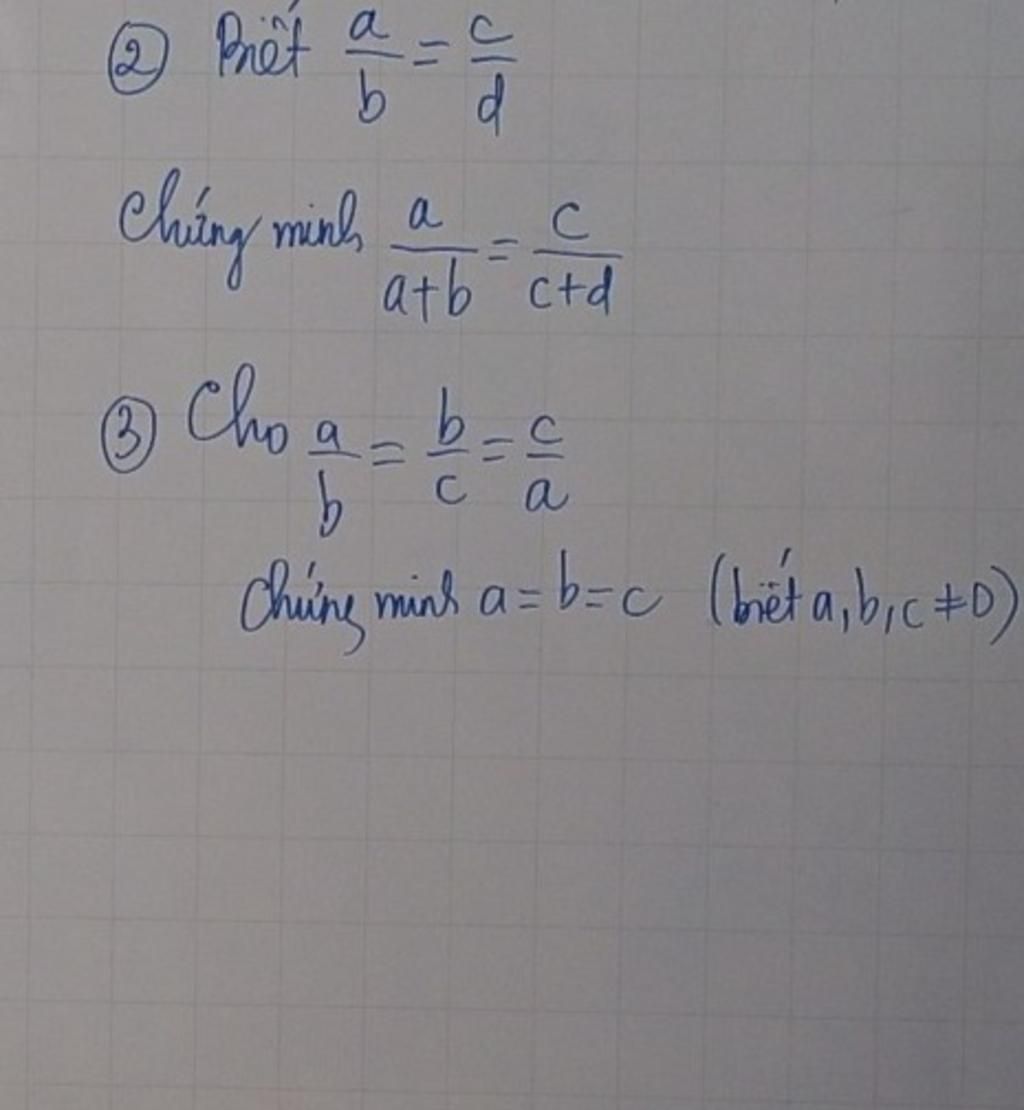 ② Biết a/b = c/d
Chứng minh a/(a+b) = c/(c+d)
③ Cho a/b = b/c = c/a
Chứng minh a = b = c (biết a, b, c ≠ 0)